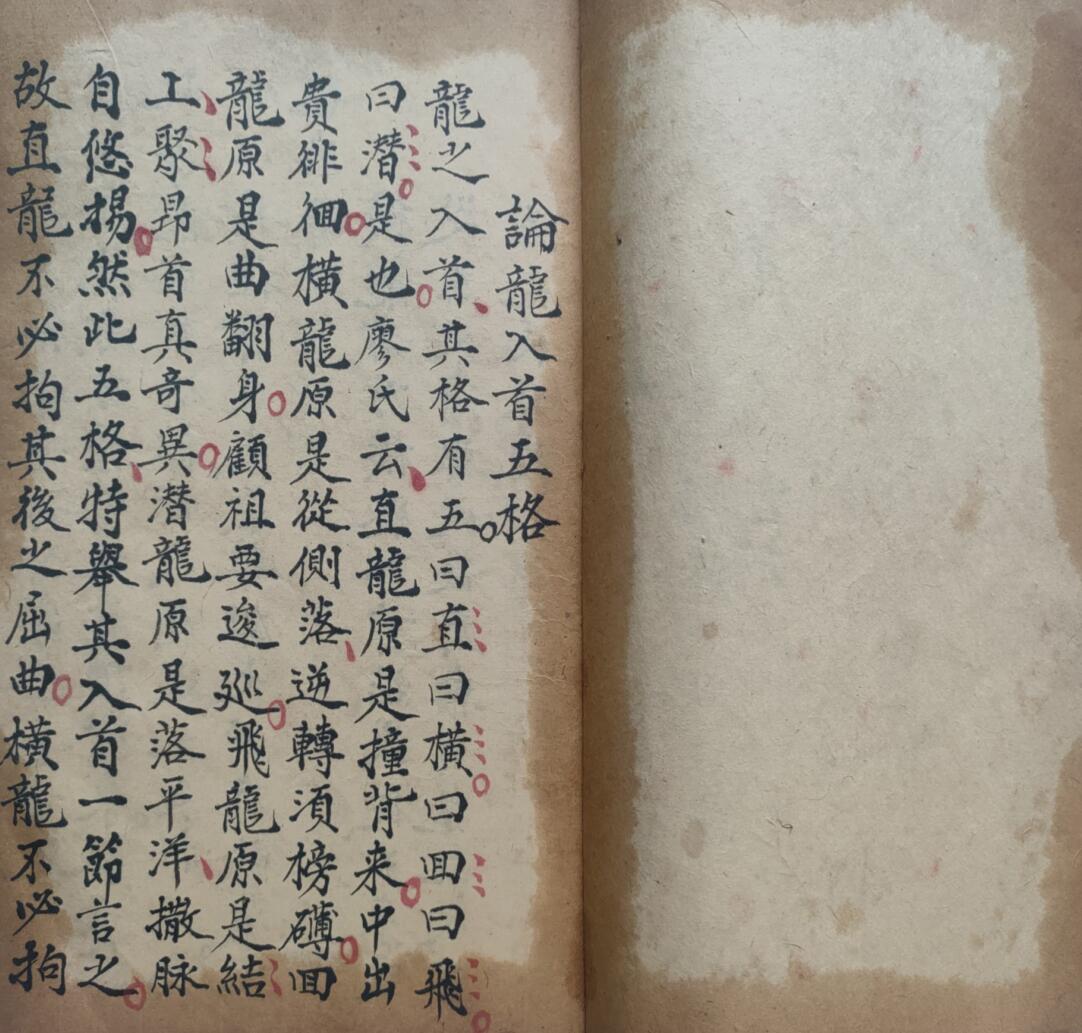 論龍入首五格
龍之入首其格有五曰直曰橫曰回曰飛
曰潜是也廖氏云直龍原是撞背来中出
貴徘徊橫龍原是從側落逆轉湏榜礴回
龍原是曲翻身顧祖要逡廵飛龍原是結
工聚昻首真竒異潜龍原是落平洋撒脉
自悠揚然此五格特舉其入首一節言之
故直龍不必拘其後之屈曲橫龍不必拘